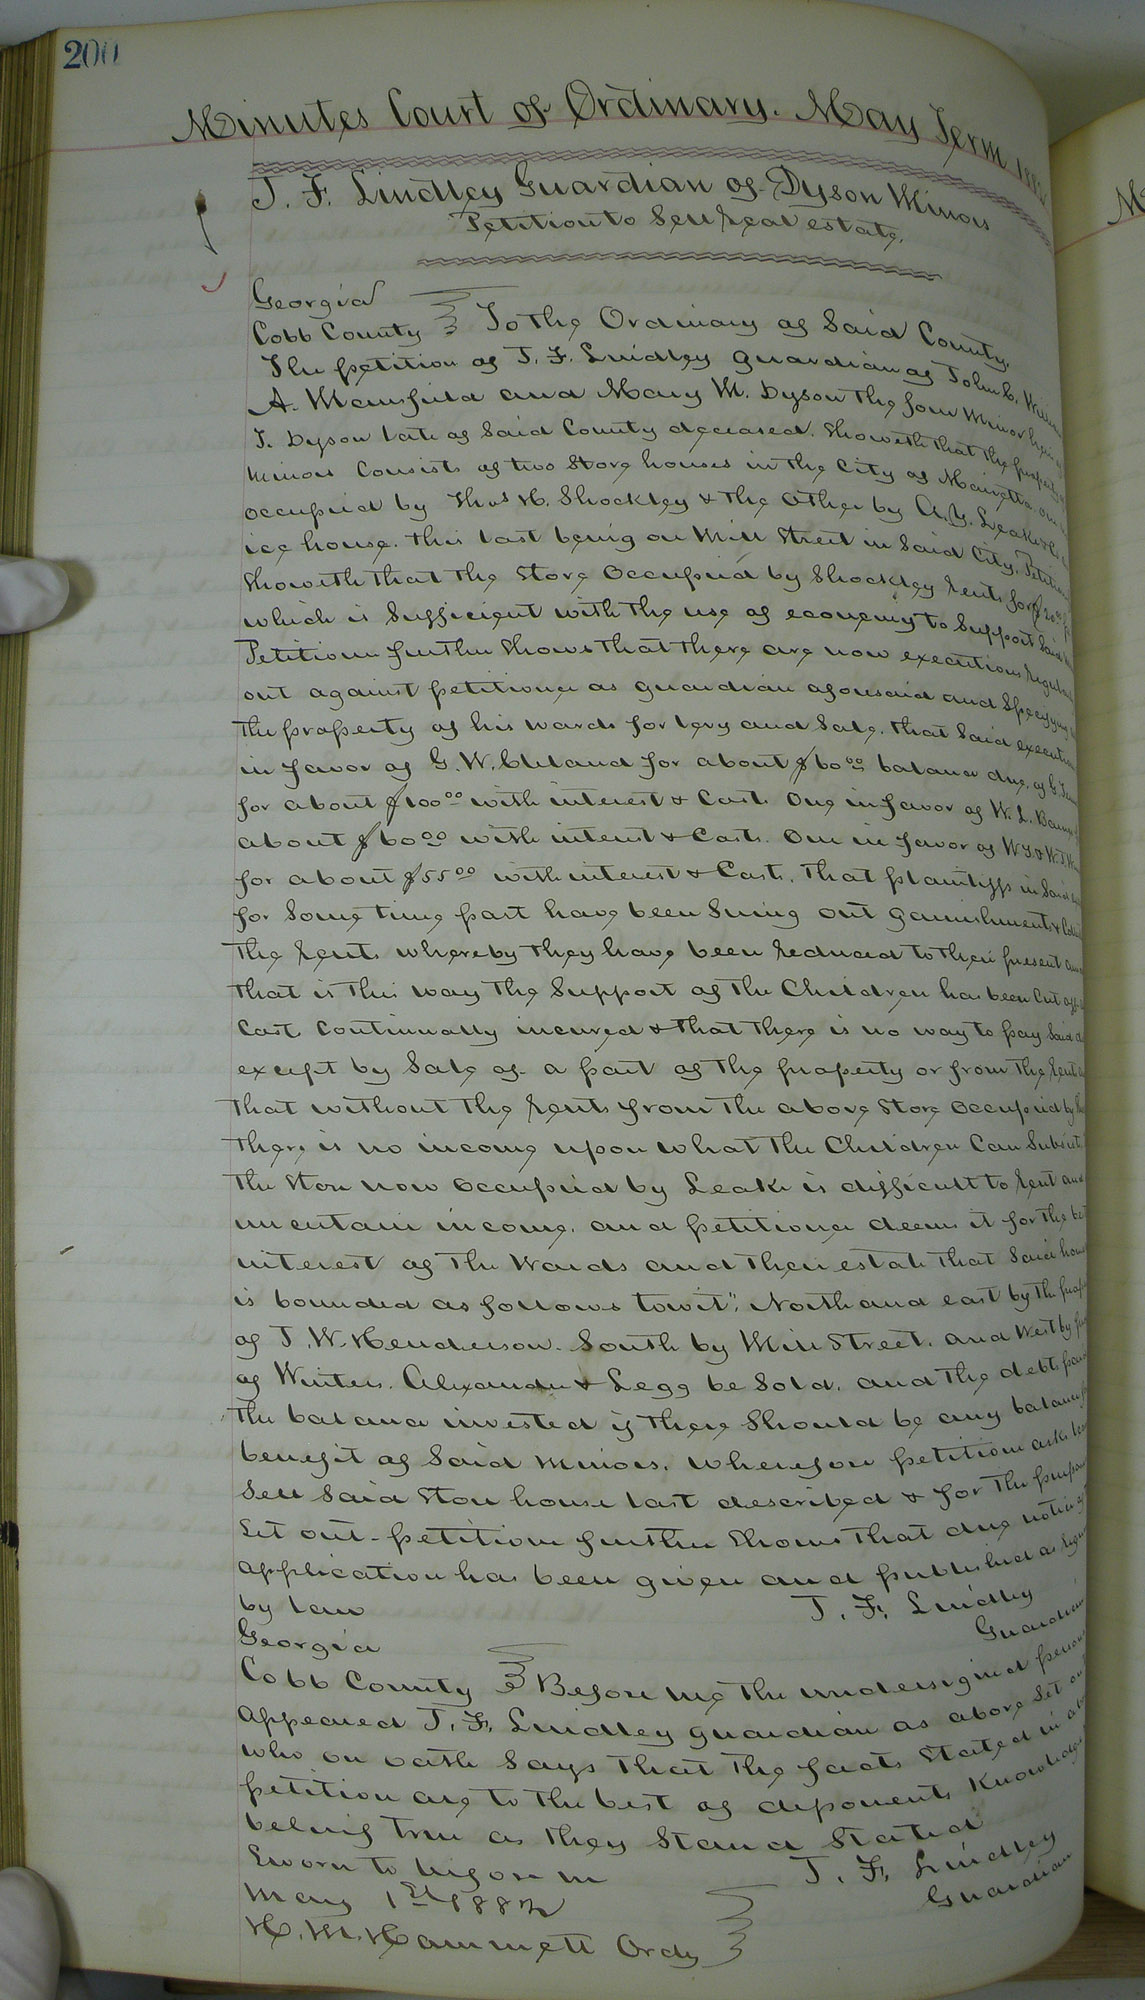 200
Minutes Court of Ordinary. May Term 1882
J. F. Lindley Guardian of Dyson Minors
Petition to Sell real estate.
Georgia
Cobb County To the Ordinary of Said County.
The petition of J. F. Lindley guardian of John C.
A. Mansfield and Mary M. Dyson the four Minor
J. Dyson late of Said County deceased. Showeth that the property
Minors Consists of two Store houses in the City of Marietta one
occupied by Thos H. Shockley & the other by A. Y. Leake
ice house. this last being on Mill Street in Said City.
Showeth that the store occupied by Shockley rents for
which is Sufficient with the use of economy to Support Said
Petitioner further Shows that there are now executions
out against petitioner as guardian aforesaid and
the property of his wards for levy and Sale. that Said
in favor of G. W. Cleland for about $60.00 balance due, of G.
for about $100.00 with interest & Costs One in favor of W. L.
about $60.00 with interest & Costs. One in favor of
for about $55.00 with interest & Costs. that plaintiffs in Said
for Some time past have been Suing out garnishments &
the rents whereby they have been reduced to their present
that is this way the Support of the Children has been Cut off
Cost Continually incured & that there is no way to pay Said
except by Sale of a part of the property or from the rent
that without the rents from the above Store occupied by
there is no income upon what the Children Can Subsist,
the store now occupied by Leake is difficult to rent and
uncertain income. and petitioner deems it for the
interest of the Wards and their estate that Said
is bounded as follows towit", North and east by the
of J. W. Henderson. South by Mill Street. and West by
of Winters. Alexander & Legg be Sold. and the debts
the balance invested if there Should be any balance
benefit of Said Minors. Wherefore petitioner asks
Sell Said Store house last described & for the
Set out - petitioner further Shows that due notice
application has been given and published as
by law J. F. Lindley
Guardian
Georgia
Cobb County Before me the undersigned
appeared J. F. Lindley guardian as above Set
who on oath Says that the facts Stated in
petition are to the best of deponents Knowledge
beleif true as they Stand Stated
Sworn to before me J. F. Lindley
May 1st 1882 Guardian
H. M. Hammett Ordy